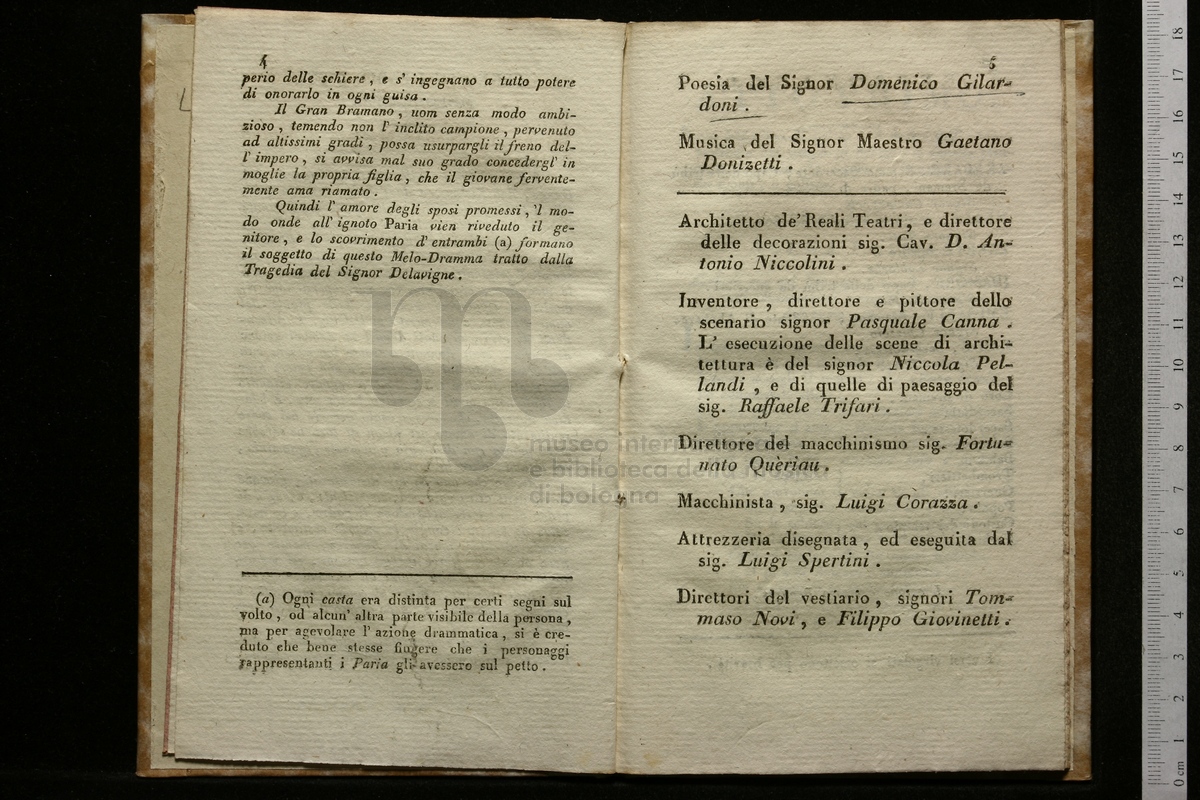 4
perio delle schiere, e s' ingegnano a tutto potere
di onorarlo in ogni guisa.
Il Gran Bramano, uom senza modo ambi-
zioso, temendo non l' inclito campione, pervenuto
ad altissimi gradi, possa usurpargli il freno del-
l' impero, si avvisa mal suo grado concedergl' in
moglie la propria figlia, che il giovane fervente-
mente ama riamato.
Quindi l' amore degli sposi promessi, 'l mo-
do onde all' ignoto Paria vien riveduto il ge-
nitore, e lo scovrimento d' entrambi (a) formano
il soggetto di questo Melo-Dramma tratto dalla
Tragedia del Signor Delavigne.
(a) Ogni casta era distinta per certi segni sul
volto, od alcun' altra parte visibile della persona,
ma per agevolare l' azione drammatica, si è cre-
duto che bene stesse fingere che i personaggi
rappresentanti i Paria gli avessero sul petto.
5
Poesia del Signor Domenico Gilar-
doni.
Musica del Signor Maestro Gaetano
Donizetti.
Architetto de' Reali Teatri, e direttore
delle decorazioni sig. Cav. D. An-
tonio Niccolini.
Inventore, direttore e pittore dello
scenario signor Pasquale Canna.
L' esecuzione delle scene di archi-
tettura è del signor Niccola Pel-
landi, e di quelle di paesaggio del
sig. Raffaele Trifari.
Direttore del macchinismo sig. Fortu-
nato Quèriau.
Macchinista, sig. Luigi Corazza.
Attrezzeria disegnata, ed eseguita dal
sig. Luigi Spertini.
Direttori del vestiario, signori Tom-
maso Novi, e Filippo Giovinetti.
museo internazionale
e biblioteca della musica
di bologna
0 cm 1 2 3 4 5 6 7 8 9 10 11 12 13 14 15 16 17 18